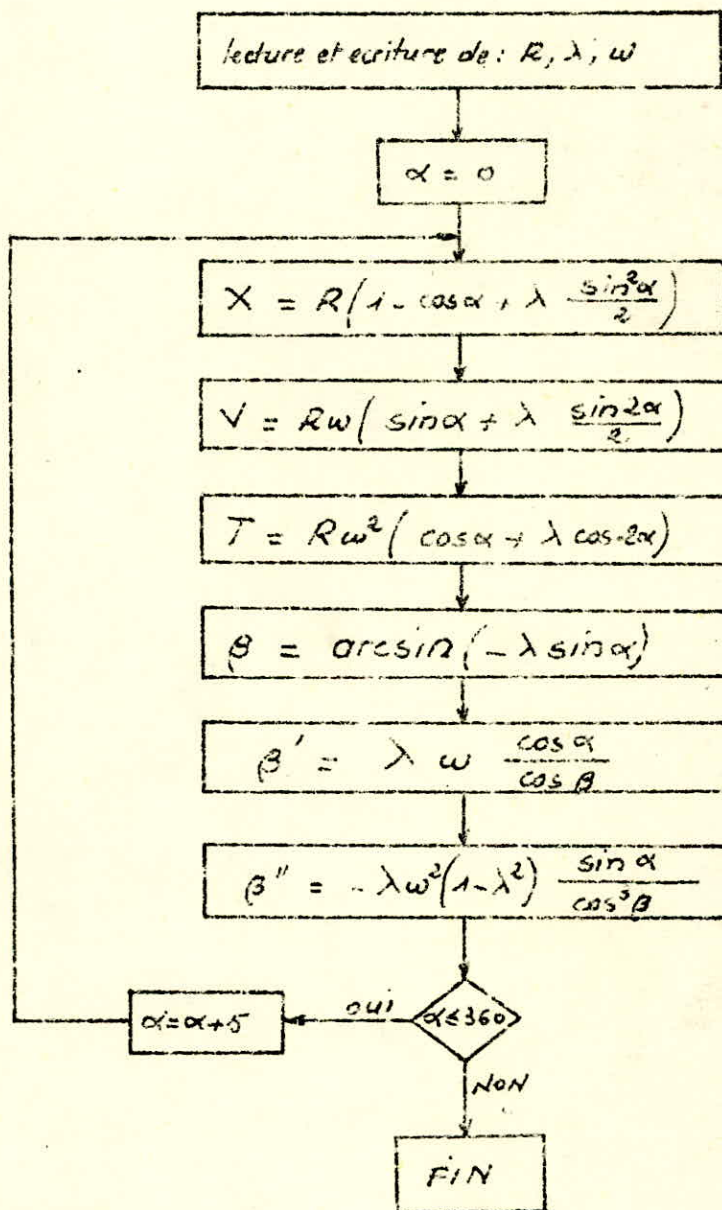 lecture et ecriture de: R, λ, ω
α = 0
X = R(1 - cosα + λ sin²α/2)
V = Rω(sinα + λ sin2α/2)
T = Rω²(cosα + λ cos·2α)
β = arcsin(-λ sinα)
β' = λ ω cosα/cos β
β'' = -λω²(1-λ²) sin α/cos³β
α=α+5
oui
α≤360
NON
FIN